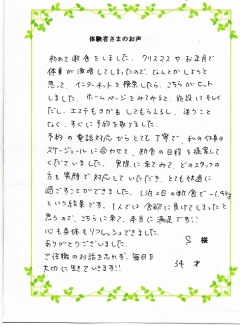 体験者さまのお声
初めて断食をしました。クリスマスやお正月で
体重が激増してしまったので、なんとかしようと
思って、インターネットで検索したら、こちらがヒット
しました。ホームページをみてみると、施設はキレイ
だし、エステもヨガもしてもらえるし、迷うこと
なく、すぐに予約を取りました。
予約の電話対応からとても丁寧で、私の仕事の
スケジュールに合わせて、断食の日程を提案して
くださいました。実際に来てみて、どのスタッフの
方も笑顔で対応していただき、とても快適に
過ごすことができました。1泊2日の断食で-1.4kg
という結果です。1人では食欲に負けてしまったと
思うので、こちらに来て、本当に満足です!!
心も身体もリフレッシュできました
ありがとうございました。
ご住職のお話を忘れず、毎日を
大切に生きていきます!!
S 様
34才